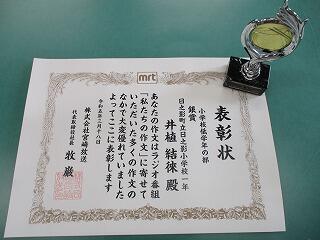 mrt
表彰状
小学校低学年の部
銀賞
日之影町立日之影小学校一年
井植 結徠 殿
あなたの作文はラジオ番組
「私たちの作文」に寄せて
いただいた多くの作文の
なかで大変優れていました
よってここに表彰します
令和五年二月十八日
株式会社宮崎放送
代表取締役社長 牧 巌